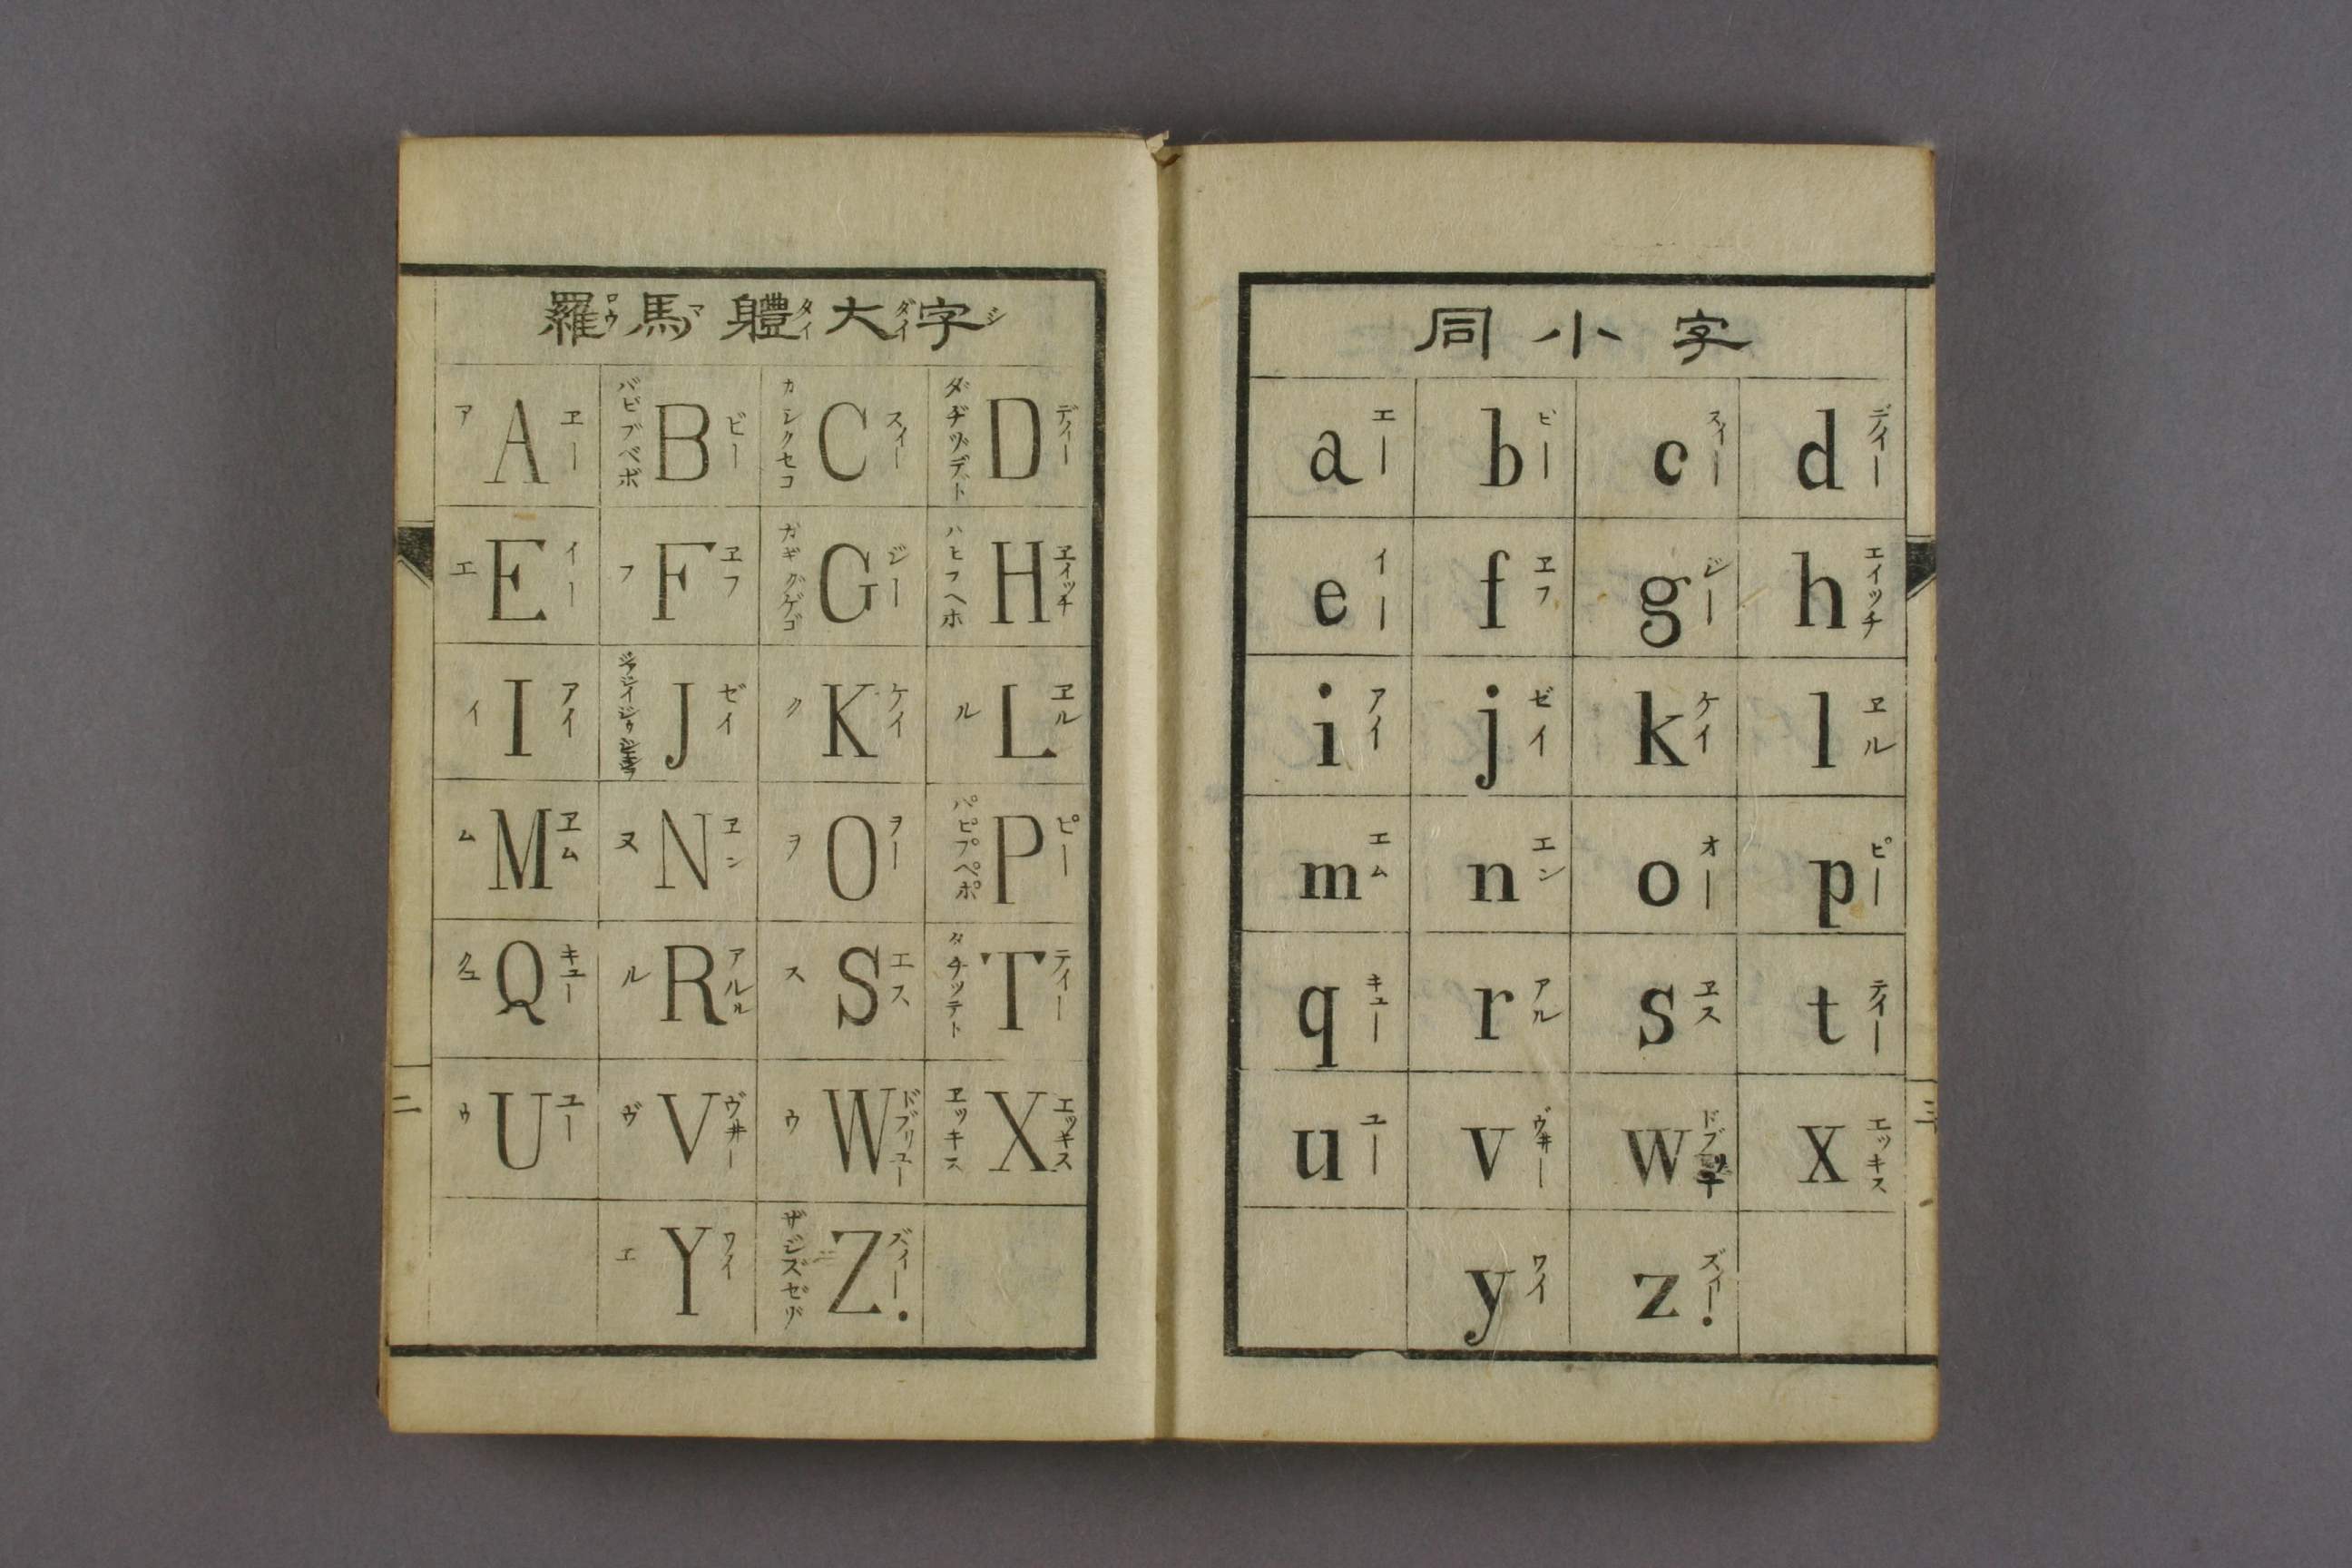 羅馬軆大字
ロウ マ タイ ダイ ジ
ア A ヱー バビブベボ B ビー カシクセコ C スイー ダヂヅデド D デイー
エ E イー フ F ヱフ ガギグゲゴ G ジー ハヒフヘホ H ヱイッチ
イ I アイ J ゼイ ク K ケイ ル L ヱル
ム M ヱム ヌ N ヱン ヲ O ヲー パピプペポ P ピー
クユ Q キユー ル R アルル ス S エス タチツテト T テイー
ウ U ユー ヴ V ヴヰー ウ W ドブリユー ヱッキス X エッキス
エ Y ワイ ザジズゼゾ Z ズイー.
二
同小字
a エー b ビー c スイー d デイー
e イー f ヱフ g ジー h エイッチ
i アイ j ゼイ k ケイ l ヱル
m エム n エン o オー p ピー
q キユー r アル s ヱス t テイー
u ユー v ヴヰー w x エッキス
y ワイ z ズイー.
三